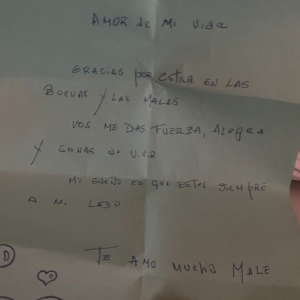 AMOR de Mi Vida
GRACIAS POR ESTAR EN LAS
BUENAS Y LAS MALAS
VOS ME DAS FUERZA, ALEGRA
Y GANAS DE VIVIR
MI SUEÑO ES QUE ESTES SIEMPRE
A MI LADO
TE AMO MUCHO MALE